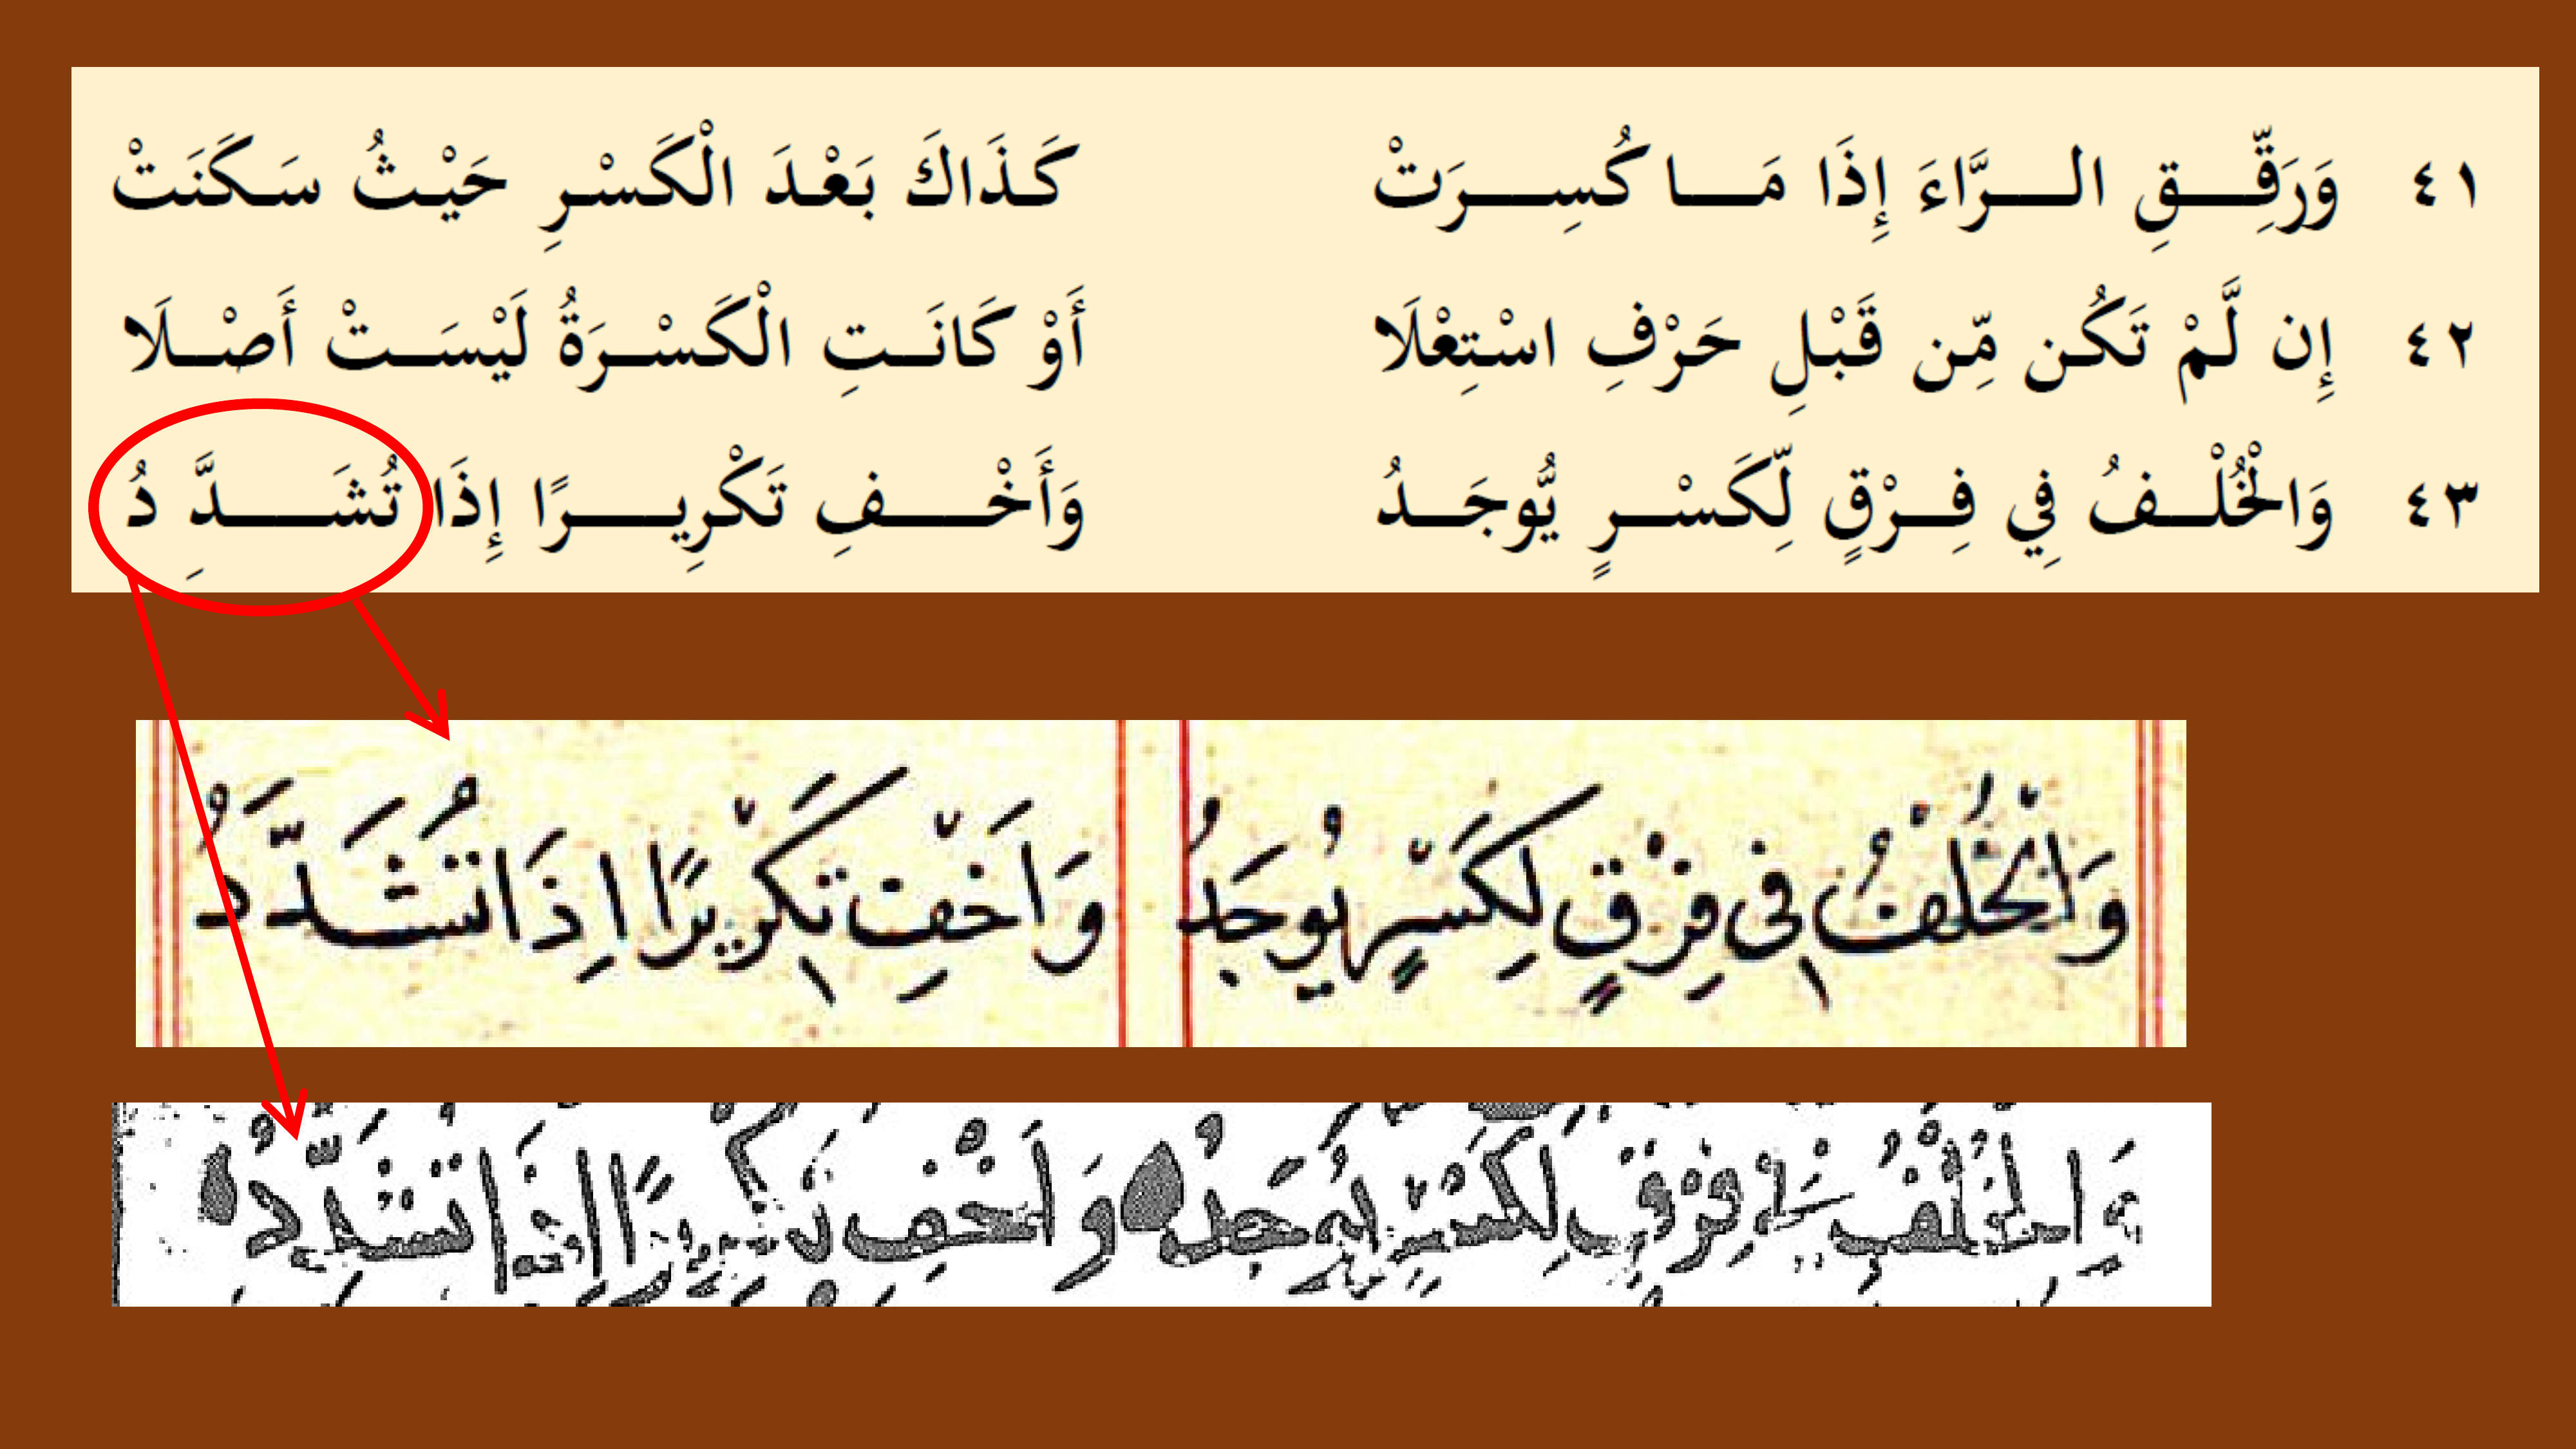 ٤١ وَرَقِّقِ الرَّاءَ إِذَا مَا كُسِرَتْ كَذَاكَ بَعْدَ الْكَسْرِ حَيْثُ سَكَنَتْ
٤٢ إِن لَّمْ تَكُن مِّن قَبْلِ حَرْفِ اسْتِعْلَا أَوْ كَانَتِ الْكَسْرَةُ لَيْسَتْ أَصْلَا
٤٣ وَالْخُلْفُ فِي فِرْقٍ لِّكَسْرٍ يُّوجَدُ وَأَخْفِ تَكْرِيرًا إِذَا تُشَدَِّدُ
وَالْخُلْفُ فِى فِرْقٍ لِكَسْرٍ يُوجَدُ وَاَخْفِ تَكْرِيرًا اِذَا تُشَدَّدُ
وَالْخُلْفُ فِے فِرْقٍ لِكَسْرٍ يُوجَدُ وَاَخْفِ تَكْرِيرًا اِذَا تُشَدِّدُ